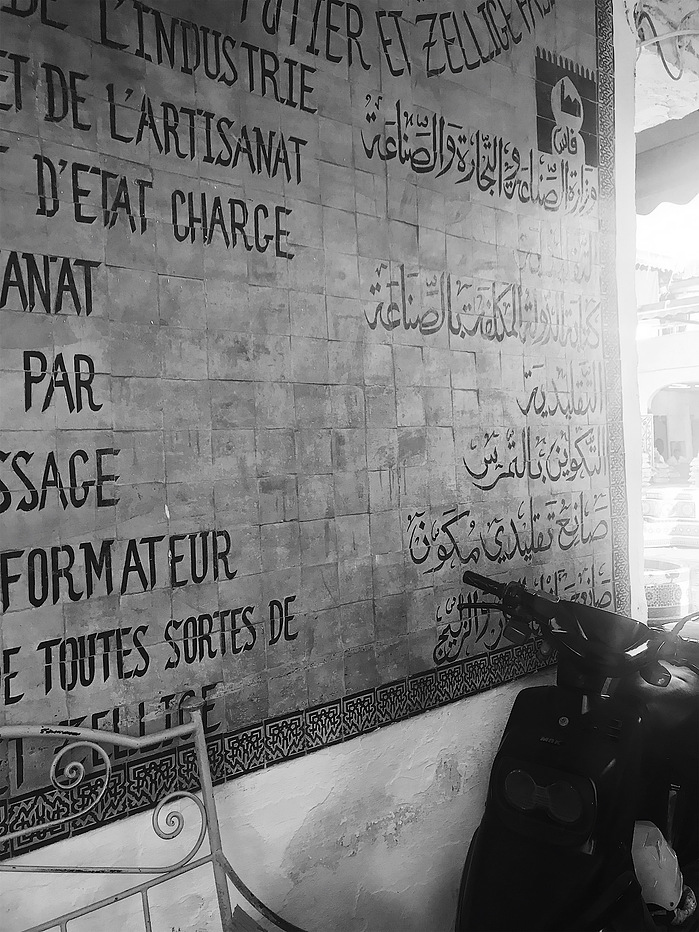 DE L'INDUSTRIE
ET DE L'ARTISANAT
D'ETAT CHARGE
ANAT
PAR
SSAGE
FORMATEUR
E TOUTES SORTES DE
ZELLIGE
POTIER ET ZELLIGE
فاس
وزارة الصناعة والتجارة والصناعة
كتابة الدولة المكلفة بالصناعة
التقليدية
التكوين بالتمرس
صانع تقليدي مكون
والزليج